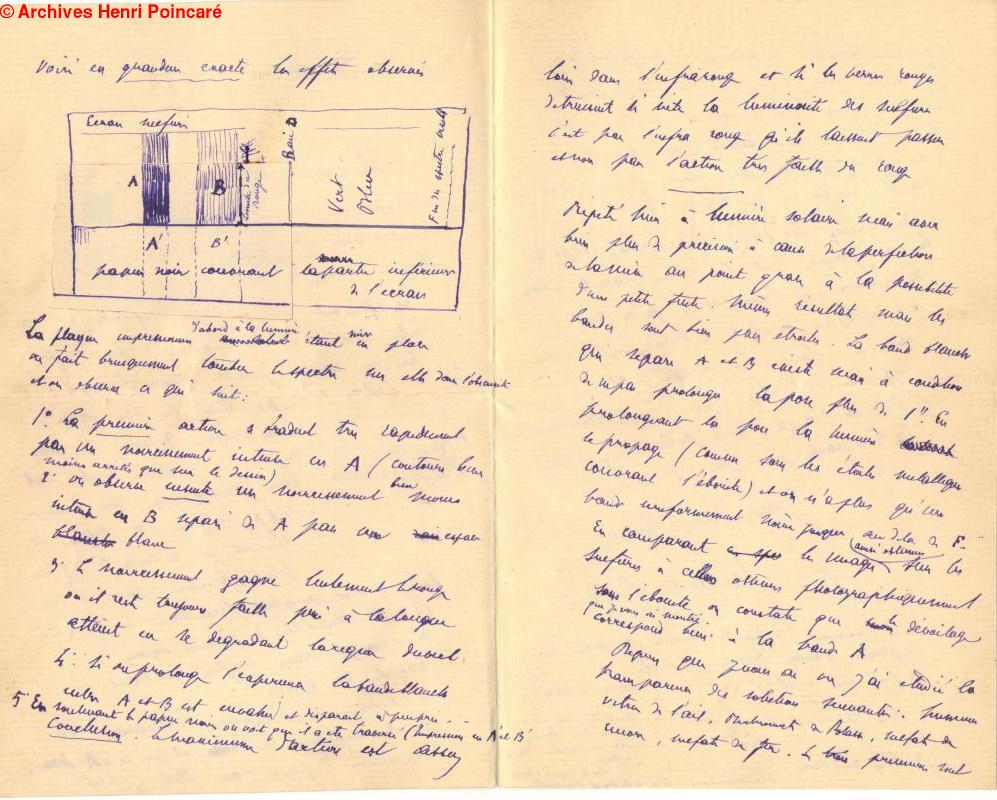 © Archives Henri Poincaré
Voici en grandeur exacte les effets observés
Ecran sulfuré
A
B
limite du rouge
Raie D
Vert
Bleu
Fin du spectre visible
A'
B'
papier noir couvrant la partie inférieure
de l'écran
d'abord à la lumière
La plaque impressionnée étant mise en place
on fait brusquement tomber le spectre sur elle dans l'obscurité
et on observe ce qui suit:
1° La première action se traduit très rapidement
par un noircissement intense en A (contours bien
moins arrêtés que sur le dessin)
2° on observe ensuite un noircissement bien moins
intense en B séparé de A par un espace
blanc
3° Le noircissement gagne lentement le rouge
où il reste toujours faible puis à la longue
atteint en se dégradant la région du vert.
4° Si on prolonge l'expérience la bande blanche
entre A et B est envahie et disparaît à peu près...
5° En soulevant le papier noir on voit que il a été traversé (Impression en A' et B'
Conclusion. Le maximum d'action est assez
loin dans l'infrarouge et si les verres rouges
détruisent si vite la luminosité des sulfures
c'est par l'infra rouge qu'ils laissent passer
et non par l'action très faible du rouge
Répété hier à lumière solaire mais avec
bien plus de précision à cause de la perfection
de la mise au point grâce à la possibilité
d'une petite fente. Même résultat mais les
bandes sont bien plus étroites. La bande blanche
qui sépare A et B existe mais à condition
de ne pas prolonger la pose plus de 1". En
prolongeant la pose la lumière
se propage (comme sous les étoiles métalliques
couvrant l'ébonite) et on n'a plus qu'une
bande uniformément noire jusque au delà de F.
En comparant les images (ainsi obtenues) sur les
sulfures à celles obtenues photographiquement
sous l'ébonite on constate que le dévoilage
que je vous ai montré
correspond bien à la bande A
Depuis que j'vous ai vu j'ai étudié la
transparence des solutions suivantes: humeur
vitrée de l'œil, bichromate de Potasse, sulfate de
cuivre, sulfate de fer. Les trois premières sont